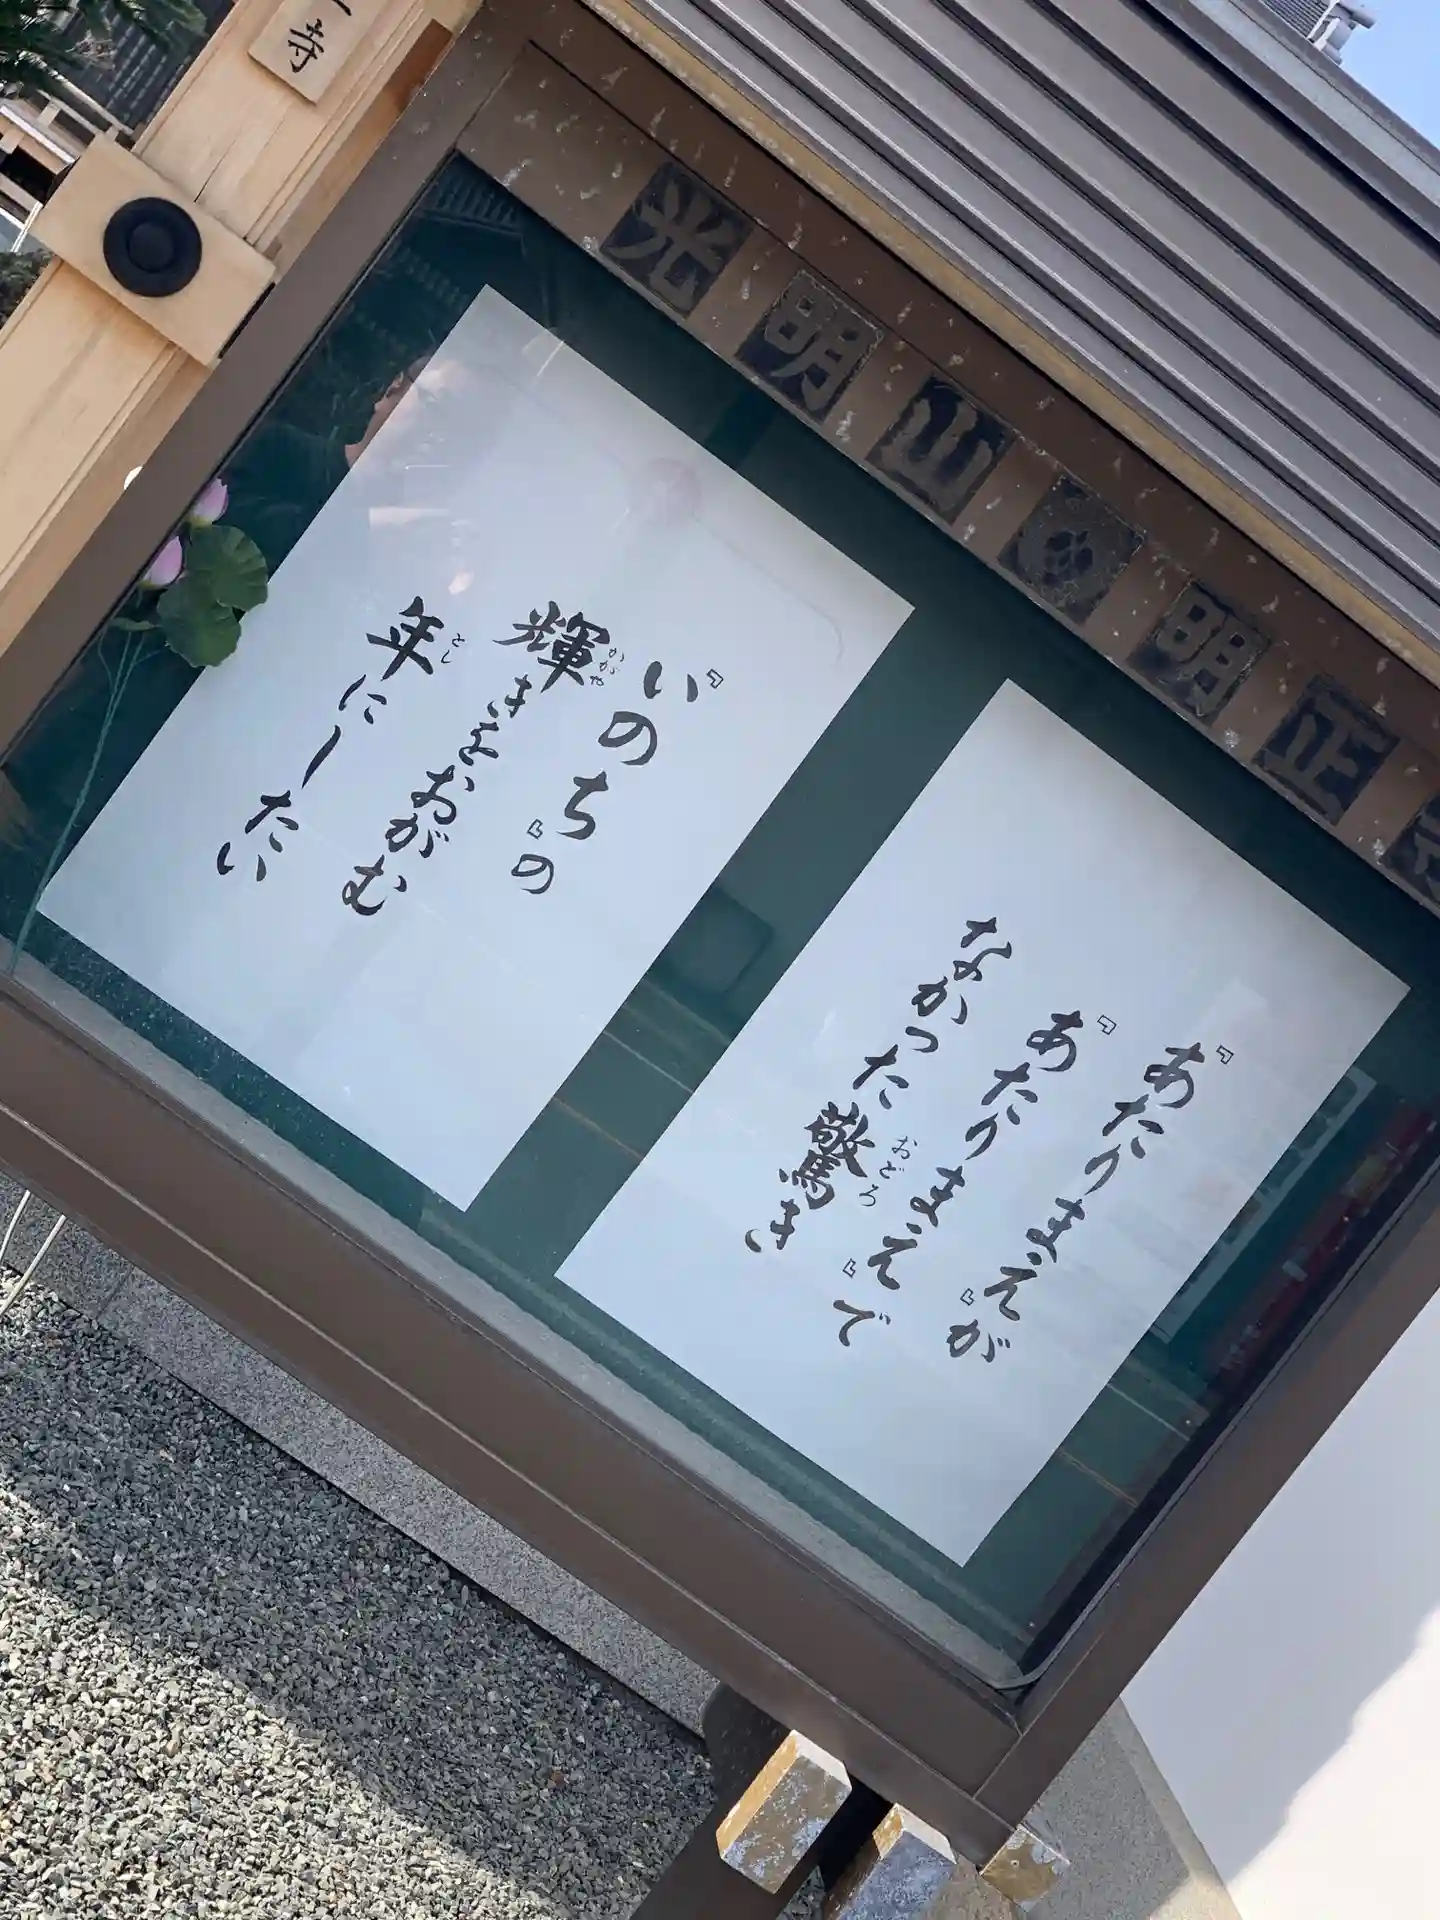 光明山 明正寺
『あたりまえ』が
『あたりまえ』で
なかった驚き
おどろ
『いのち』の
輝きをおがむ
かがや
年にしたい
とし
寺